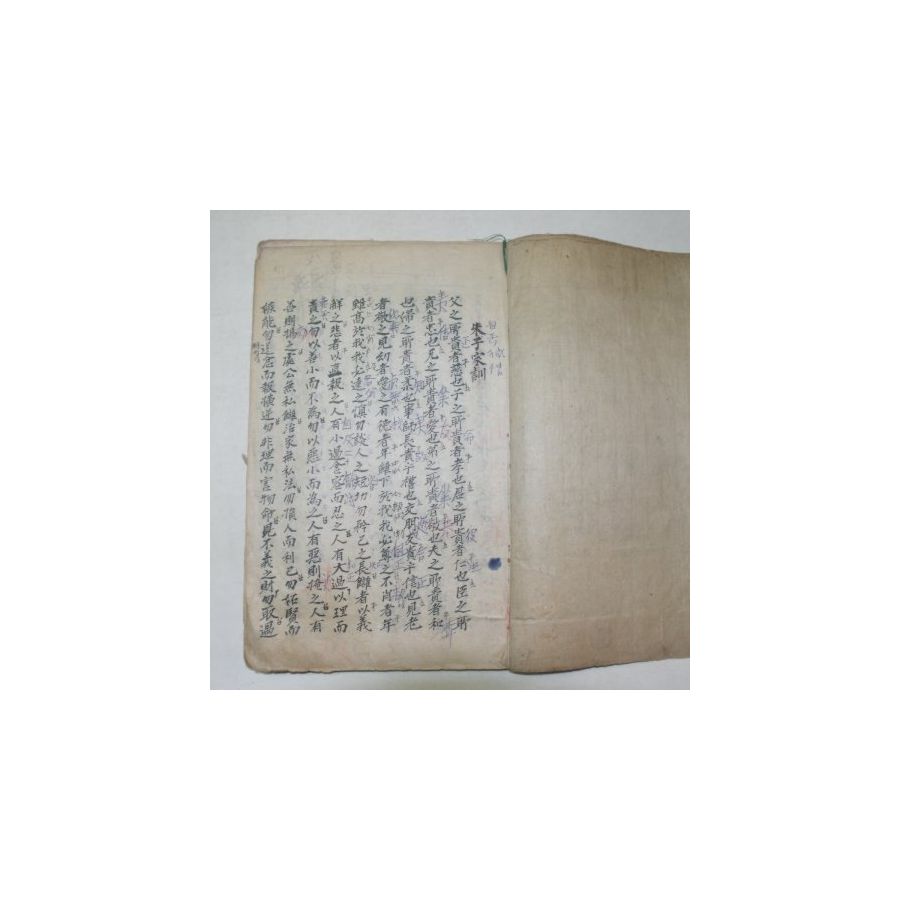 朱子家訓
父之所貴者慈也子之所貴者孝也君之所貴者仁也臣之所
貴者忠也兄之所貴者愛也弟之所貴者敬也夫之所貴者和
也婦之所貴者柔也事師長貴乎禮也交朋友貴乎信也見老
者敬之見幼者愛之有德者年雖下於我我必尊之不肖者年
雖高於我我必遠之慎勿談人之短切勿矜己之長讎者以義
解之怨者以直報之人有小過含容而忍之人有大過以理而
責之勿以善小而不為勿以惡小而為之人有惡則掩之人有
善則揚之處公無私讎治家無私法勿損人而利己勿妬賢而
嫉能勿逞忿而報橫逆勿非理而害物命見不義之財勿取遇